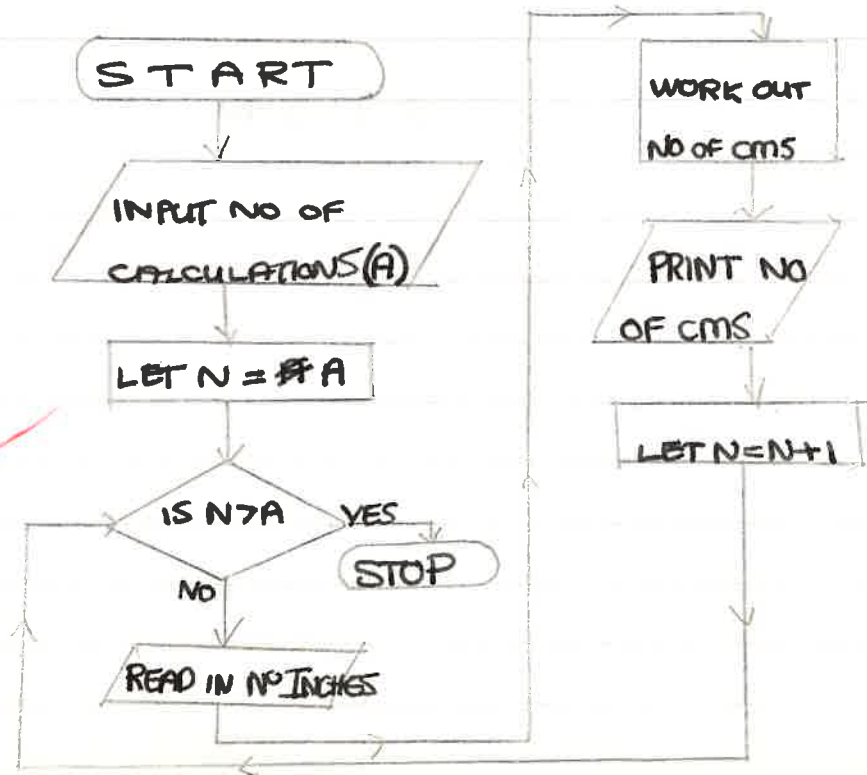 START
INPUT NO OF
CALCULATIONS (A)
LET N = A
IS N>A
YES
STOP
NO
READ IN NO INCHES
WORK OUT
NO OF CMS
PRINT NO
OF CMS
LET N=N+1